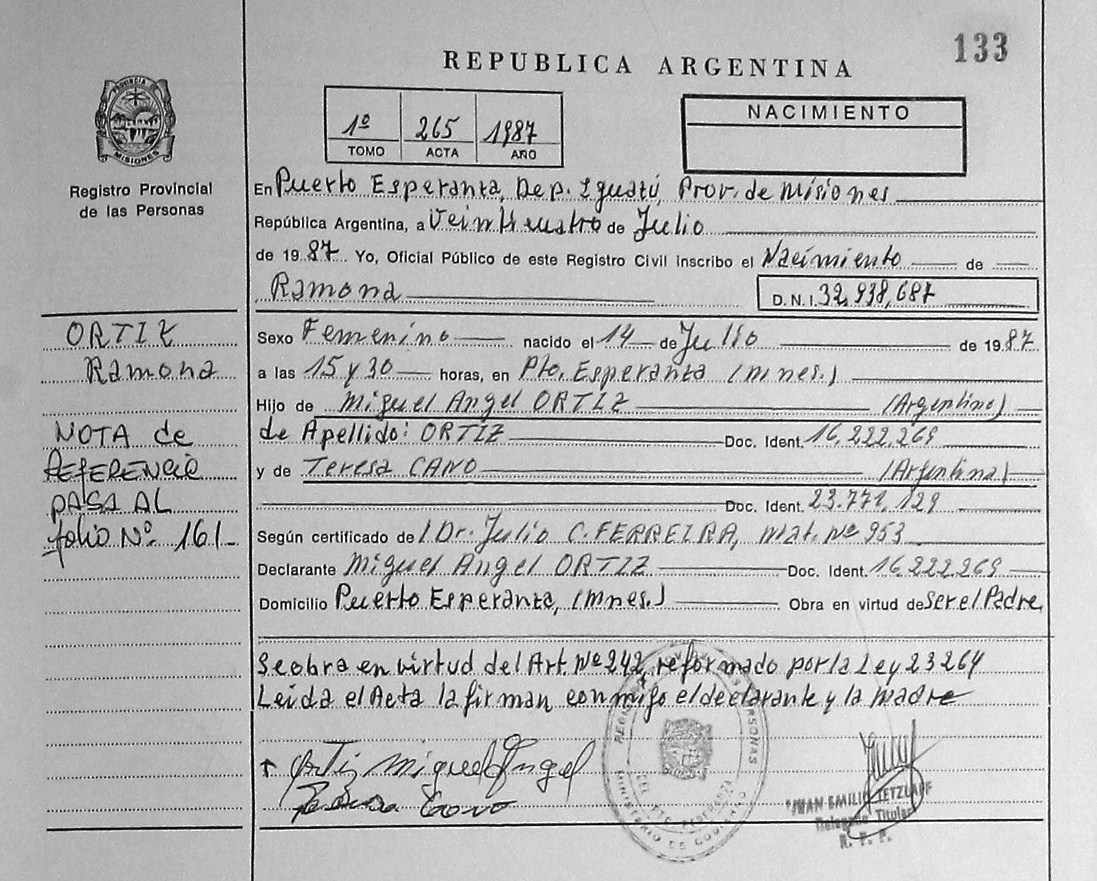 133
REPUBLICA ARGENTINA
PROVINCIA DE MISIONES
Registro Provincial
de las Personas
1º 265 1987
TOMO ACTA AÑO
NACIMIENTO
En Puerto Esperanza, Dep. Iguazú, Prov. de Misiones
República Argentina, a Veinticuatro de Julio
de 1987. Yo, Oficial Público de este Registro Civil inscribo el Nacimiento de
Ramona
D.N.I. 32,938,687
ORTIZ
Ramona
NOTA de
REFERENCIA
PASA AL
folio Nº 161
Sexo Femenino nacido el 14 de Julio de 1987.
a las 15 y 30 horas, en Pto. Esperanza (mnes.)
Hijo de Miguel Angel ORTIZ (Argentino)
de Apellido: ORTIZ Doc. Ident. 16,222,269
y de Teresa CANO (Argentina)
Doc. Ident. 23.771,129
Según certificado de Dr. Julio C. FERREIRA, mat. Nº 953
Declarante Miguel Angel ORTIZ Doc. Ident. 16,222,269
Domicilio Puerto Esperanza, (mnes.) Obra en virtud de Ser el Padre
Se obra en virtud del Art. Nº 242, reformado por la Ley 23264
Leida el Acta la firman conmigo el declarante y la madre
Ortiz Miguel Angel
Teresa Cano
MINISTERIO DE GOBIERNO
JUAN EMILIO TETZLAFF
Delegado Titular
R. P. P.